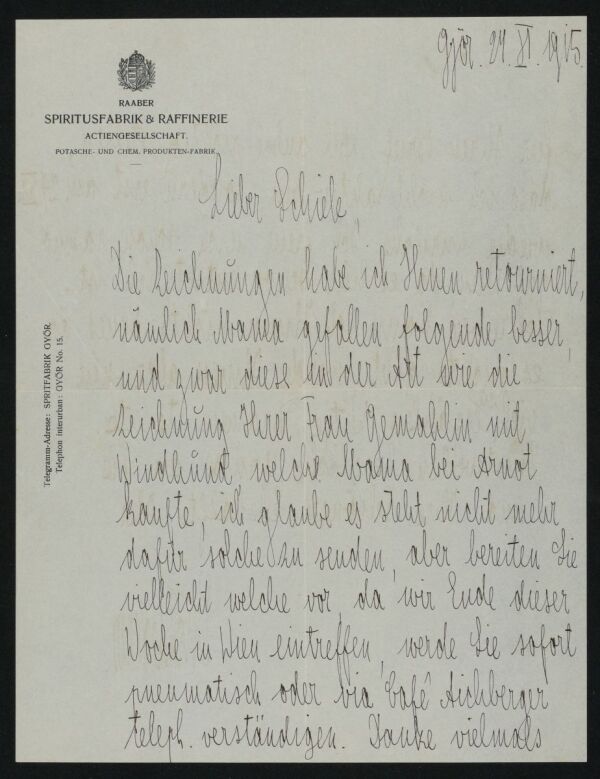 Győr. 24. XI. 1915.
RAABER
SPIRITUSFABRIK & RAFFINERIE
ACTIENGESELLSCHAFT.
POTASCHE- UND CHEM. PRODUKTEN-FABRIK.
Lieber Schiele,
Die Zeichnungen habe ich Ihnen retourniert,
nämlich Mama gefallen folgende besser,
und zwar diese in der Art wie die
Zeichnung Ihrer Frau Gemahlin mit
Windhund welche Mama bei Arnot
kaufte, ich glaube es steht nicht mehr
dafür solche zu senden, aber bereiten Sie
vielleicht welche vor, da wir Ende dieser
Woche in Wien eintreffen, werde Sie sofort
pneumatisch oder via Café Aichberger
teleph. verständigen. Danke vielmals
Telegramm-Adresse: SPRITFABRIK GYŐR.
Telephon interurban: GYŐR No. 15.